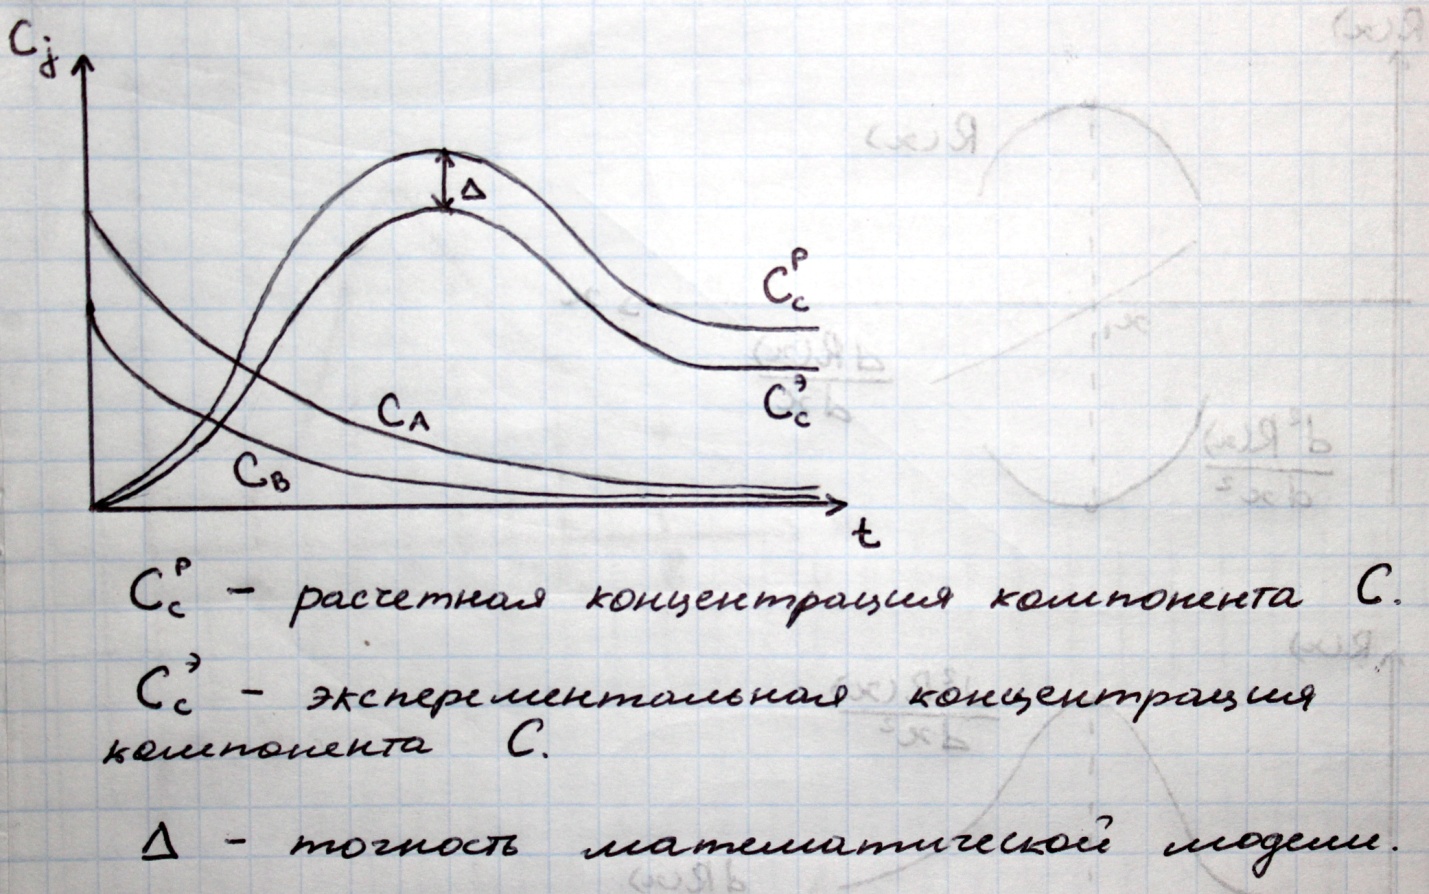 C_j
Δ
C_c^P
C_c^Э
C_A
C_B
t
C_c^P – расчетная концентрация компонента С.
C_c^Э – эксперементальная концентрация
компонента С.
Δ – точность математической модели.
R(x)
R(x)
dR(x)
dx
d²R(x)
dx²
R(x)
d²R(x)
dx²
dR(x)